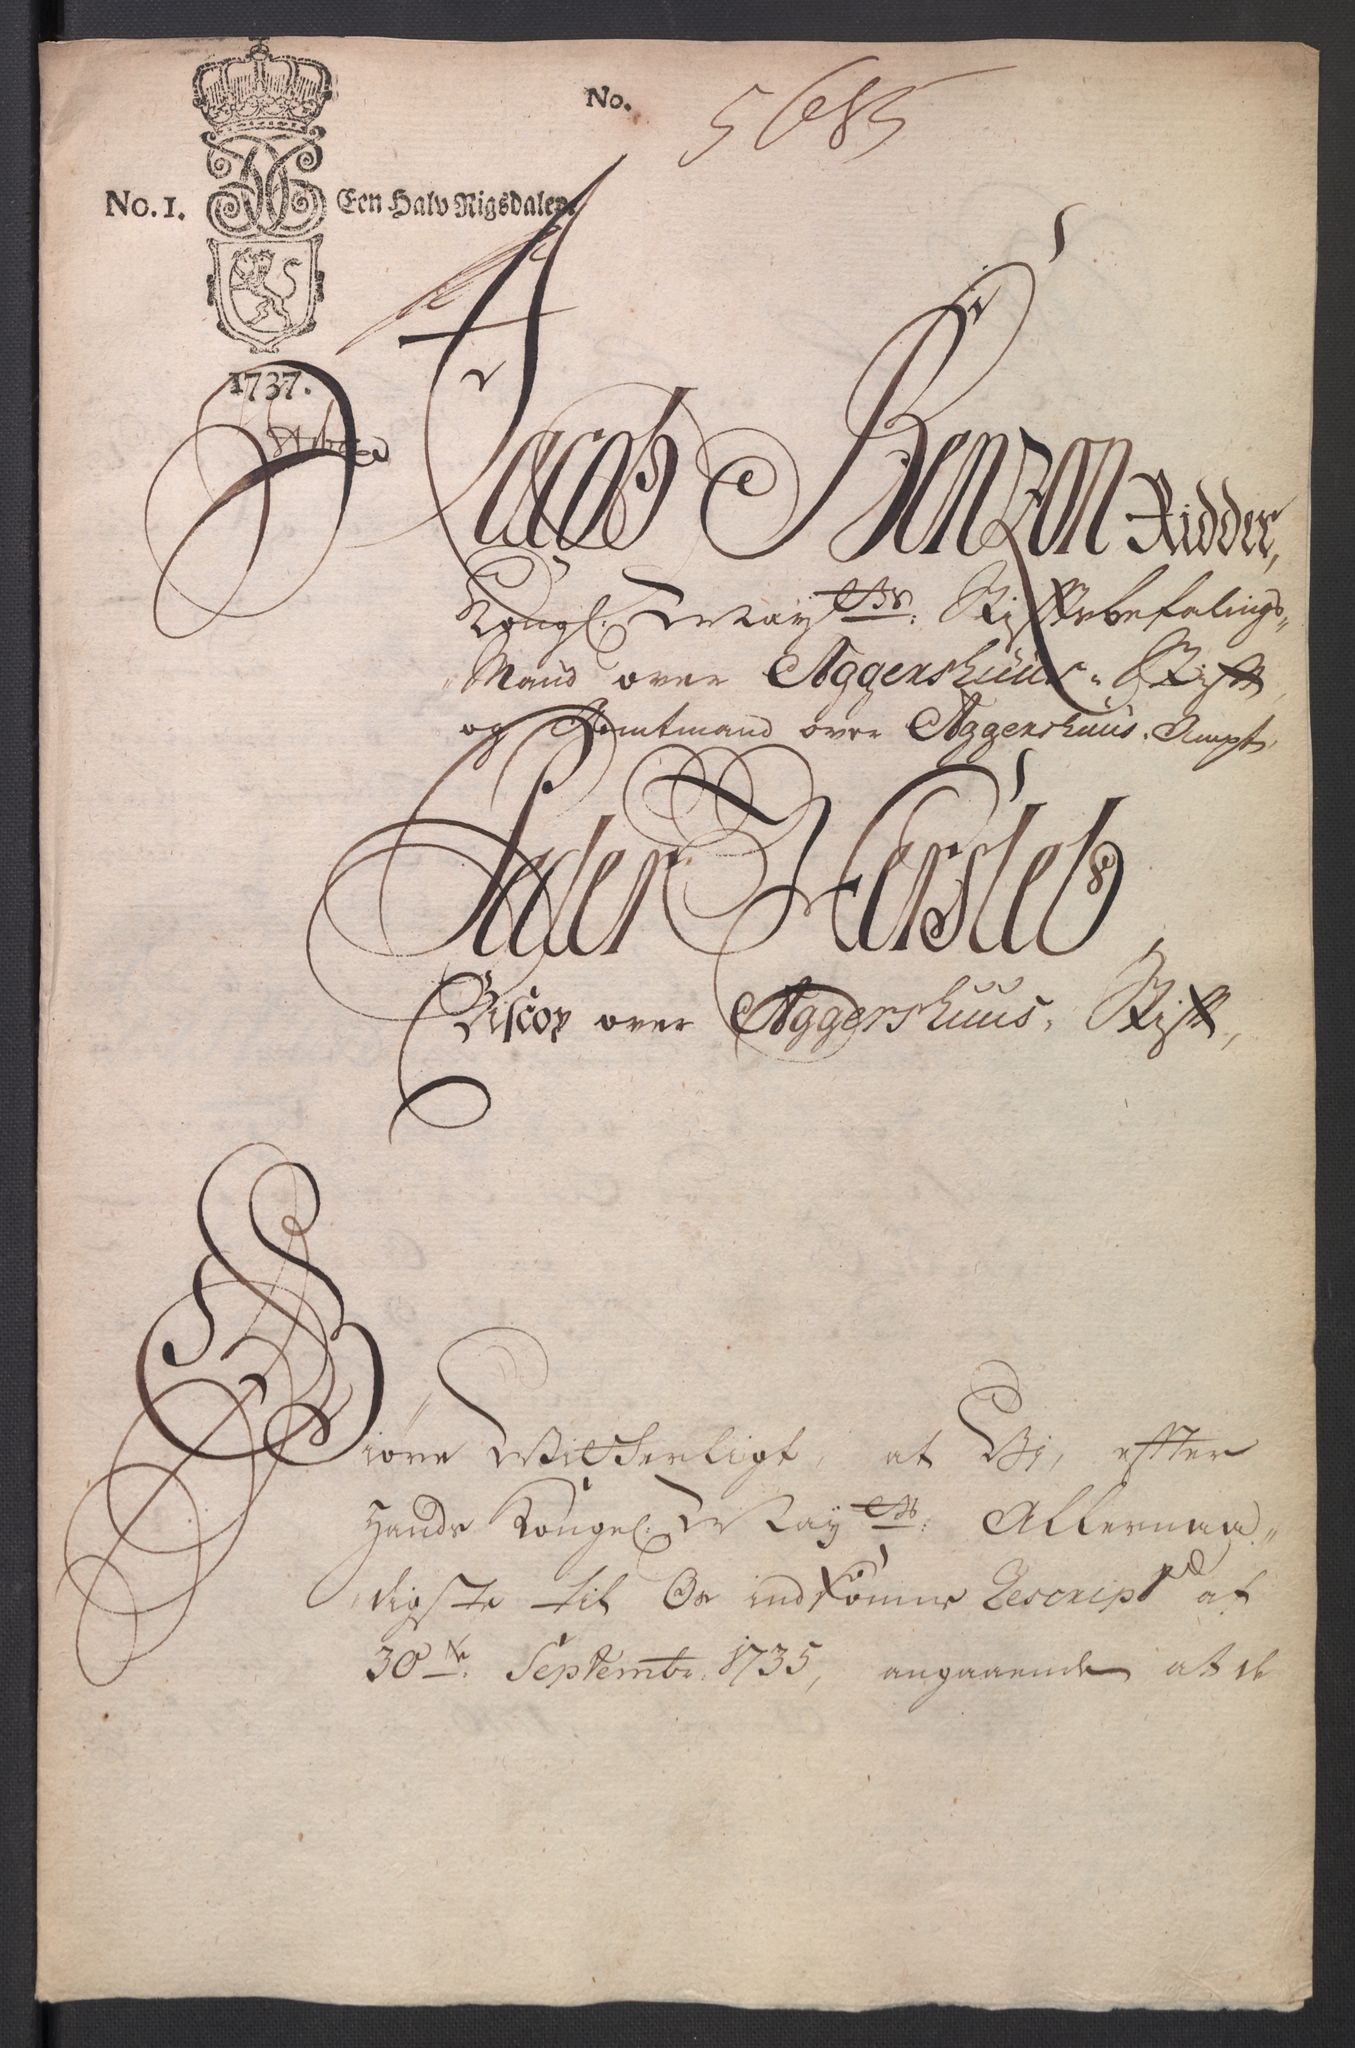 No. 5685
No. 1. Een Halv Rigsdaler.
1737.
Jacob Benzon Ridder,
Kongl. Mayts: Stiftsbefalings-
Mand over Aggershuus-Stift
og Amtmand over Aggershuus-Ampt,
Peder Hersleb,
Biscop over Aggershuus-Stift,
Giøre Witterligt, at Vi, efter
Hands Kongel. Mayts: Allernaa-
digste til Os indkomne Rescript af
30te Septembr. 1735, angaaende at de